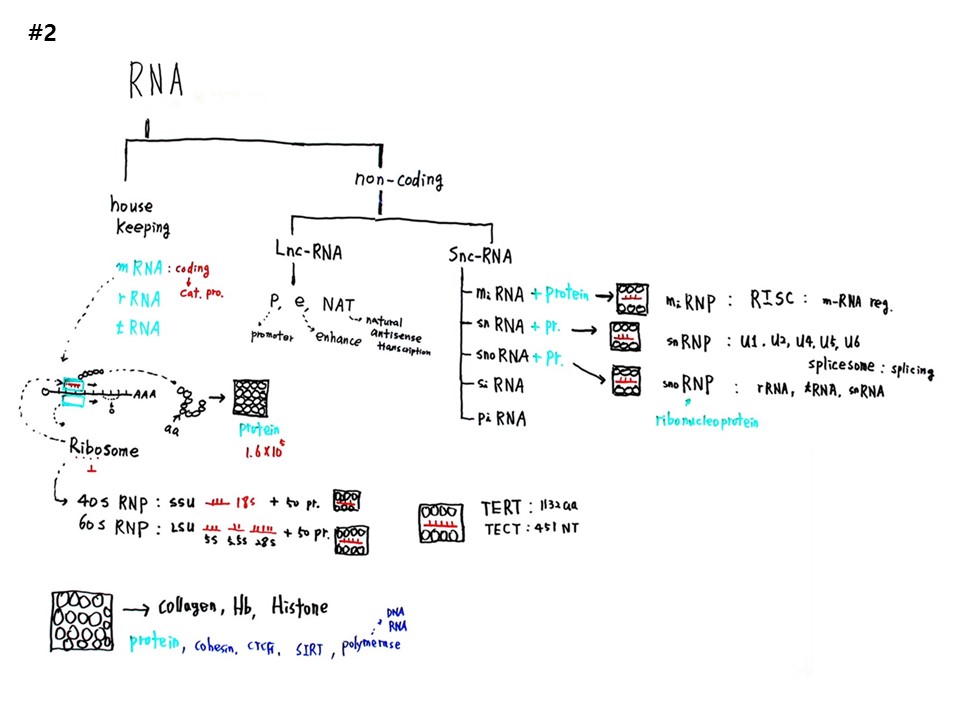 #2
RNA
non-coding
house
keeping
Lnc-RNA
Snc-RNA
mRNA : coding
cat. pro.
rRNA
tRNA
P, e, NAT
promoter
enhance
natural
antisense
transcription
miRNA + protein → miRNP : RISC : m-RNA reg.
snRNA + pr. → snRNP : U1. U2, U4, U5, U6
splicesome : splicing
snoRNA + pr. → snoRNP : rRNA, tRNA, snRNA
ribonucleoprotein
siRNA
piRNA
AAA
aa
protein
1.6 X 10⁵
Ribosome
40S RNP : SSU 18s + 50 pr.
60S RNP : LSU 5s 5.5s 28s + 50 pr.
TERT : 1132aa
TECT : 451 NT
collagen, Hb, Histone
DNA
RNA
protein, cohesin, SIRT, polymerase